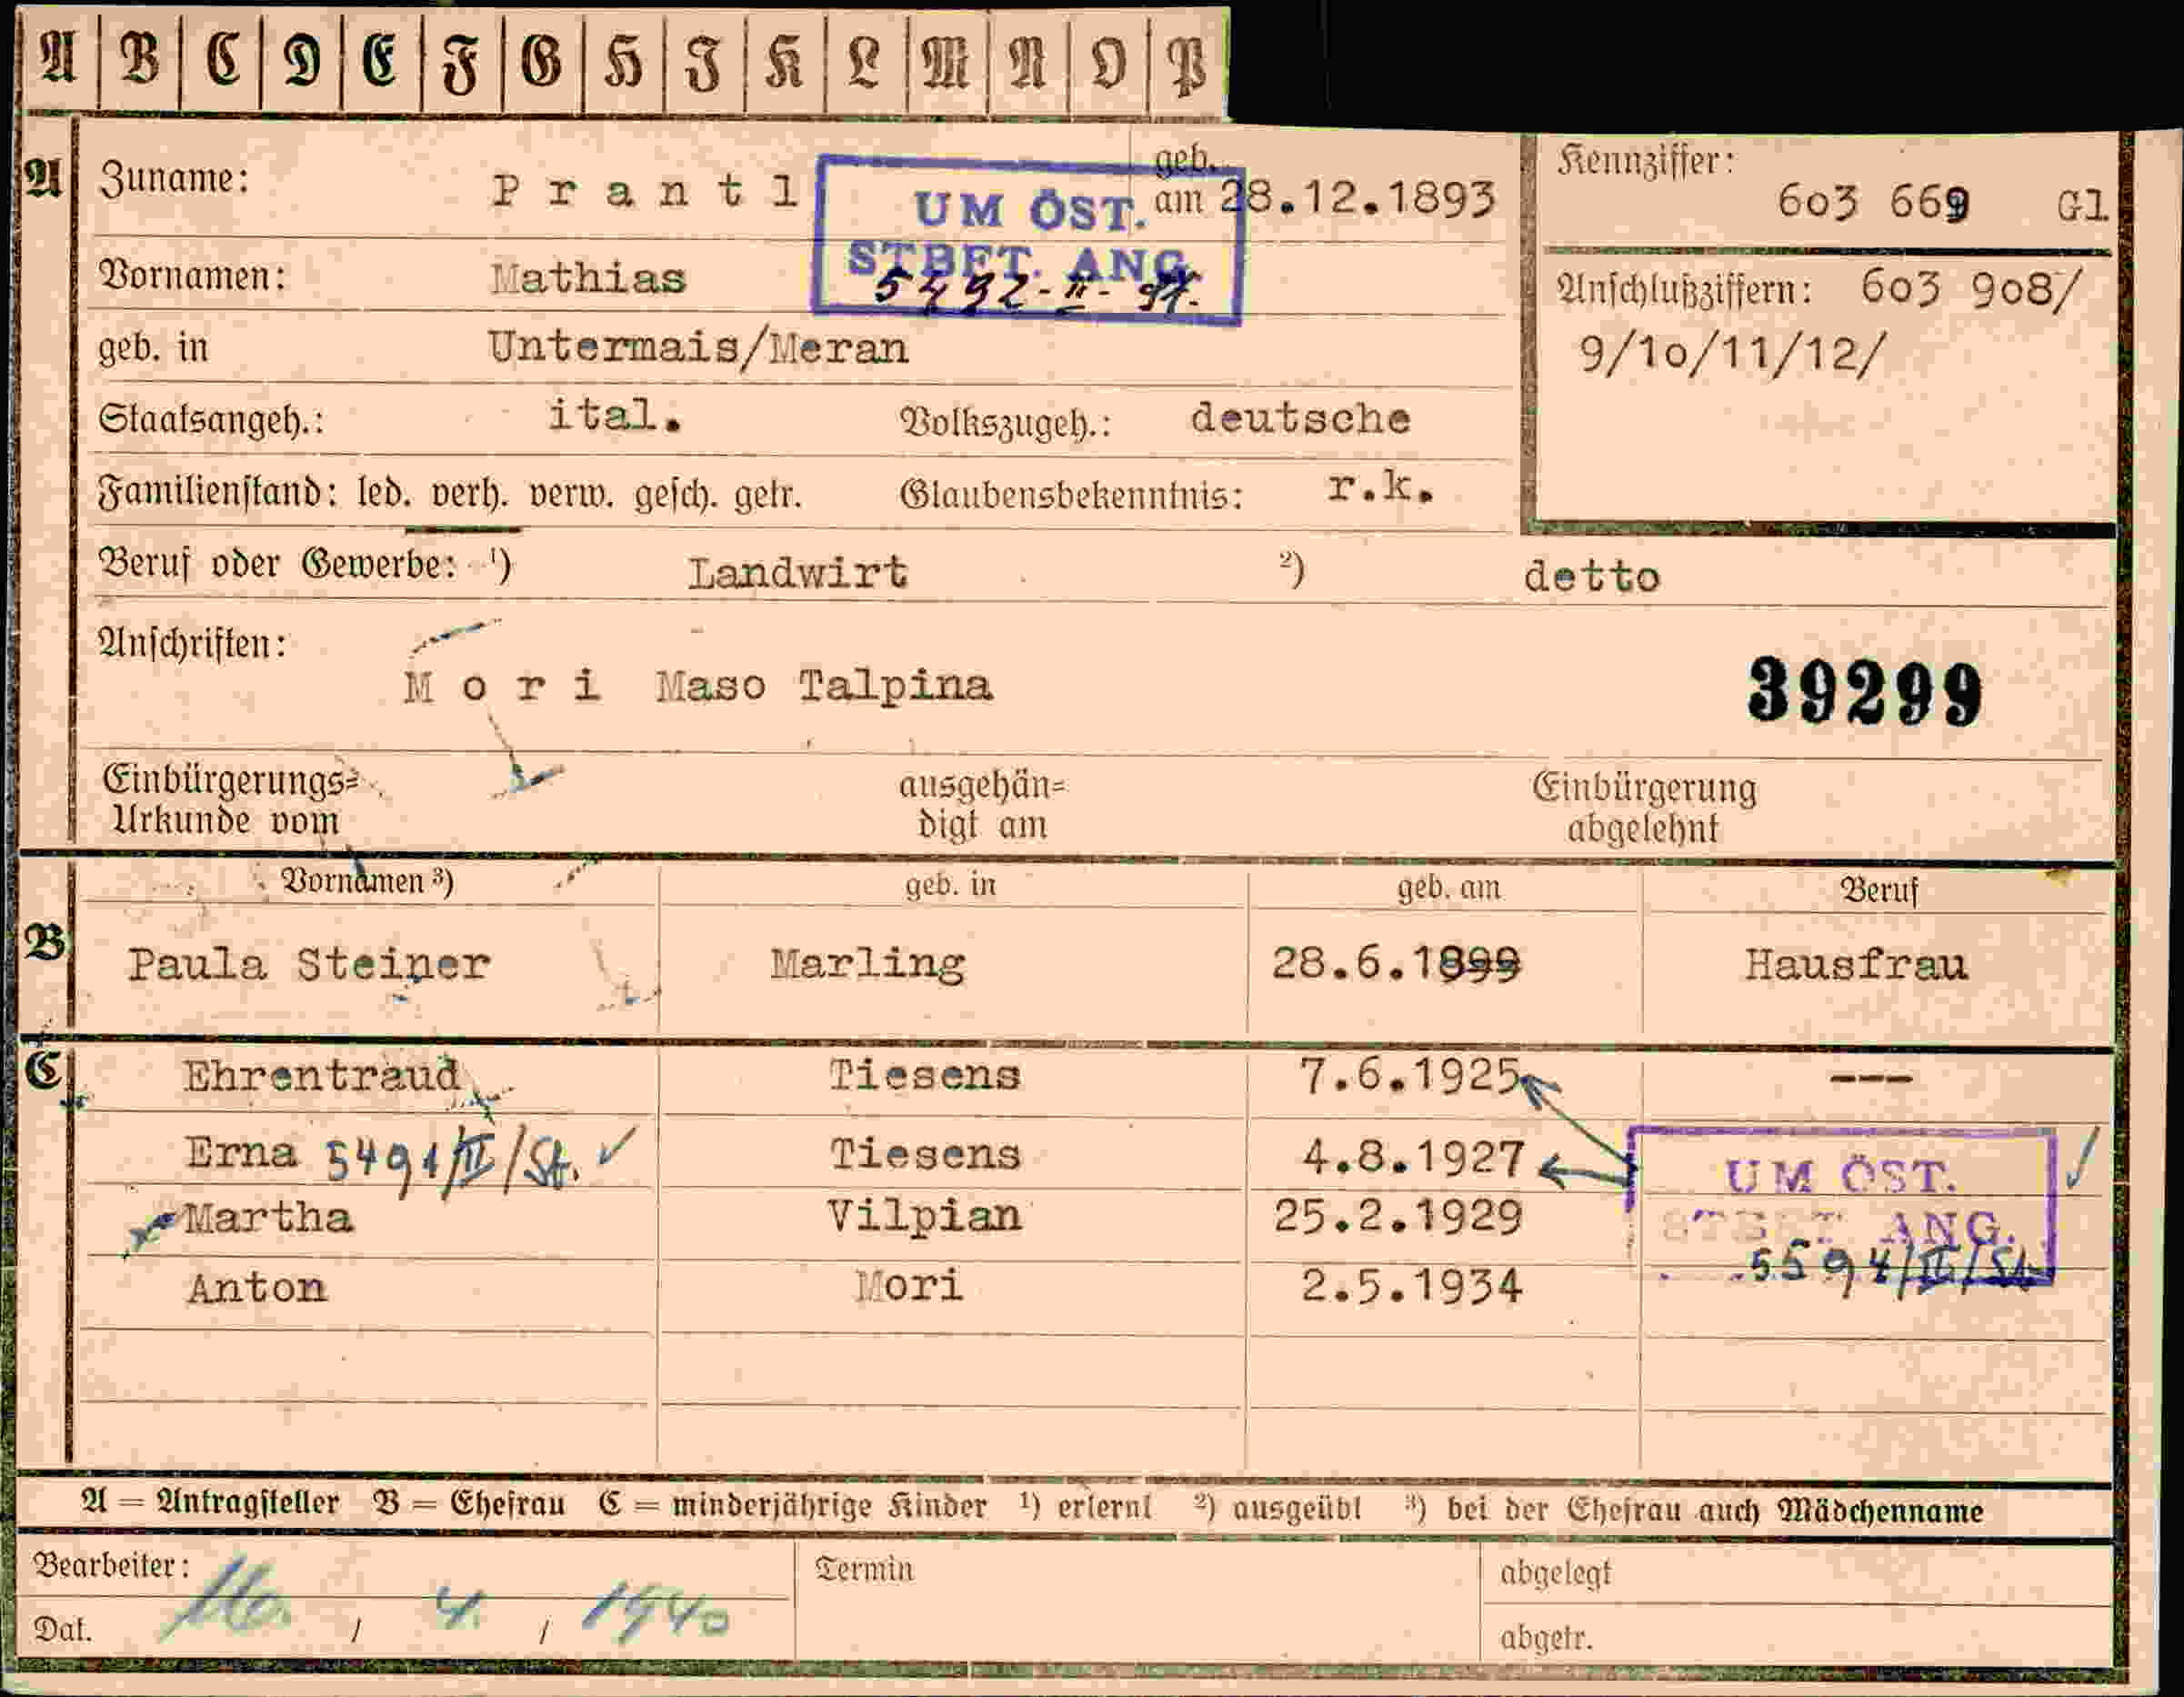 A B C D E F G H I K L M N O P
A Zuname: Prantl geb. am 28.12.1893
UM ÖST.
STBET. ANG.
Kennziffer: 603 669 Gl
Vornamen: Mathias
Anschlußziffern: 603 908/
9/10/11/12/
geb. in Untermais/Meran
Staatsangeh.: ital. Volkszugeh.: deutsche
Familienstand: led. verh. verw. gesch. getr. Glaubensbekenntnis: r.k.
Beruf oder Gewerbe: ¹) Landwirt ²) detto
Anschriften:
Mori Maso Talpina
39299
Einbürgerungs=
Urkunde vom
ausgehän=
digt am
Einbürgerung
abgelehnt
Vornamen ³) geb. in geb. am Beruf
B Paula Steiner Marling 28.6.1899 Hausfrau
C Ehrentraud Tiesens 7.6.1925 ---
Erna 5491/II/St. ✓ Tiesens 4.8.1927
UM ÖST. ✓
Martha Vilpian 25.2.1929
STBET. ANG.
5594/II/St.
Anton Mori 2.5.1934
A = Antragsteller B = Ehefrau C = minderjährige Kinder ¹) erlernt ²) ausgeübt ³) bei der Ehefrau auch Mädchenname
Bearbeiter: Termin abgelegt
Dat. 16. / 4. / 1940 abgetr.